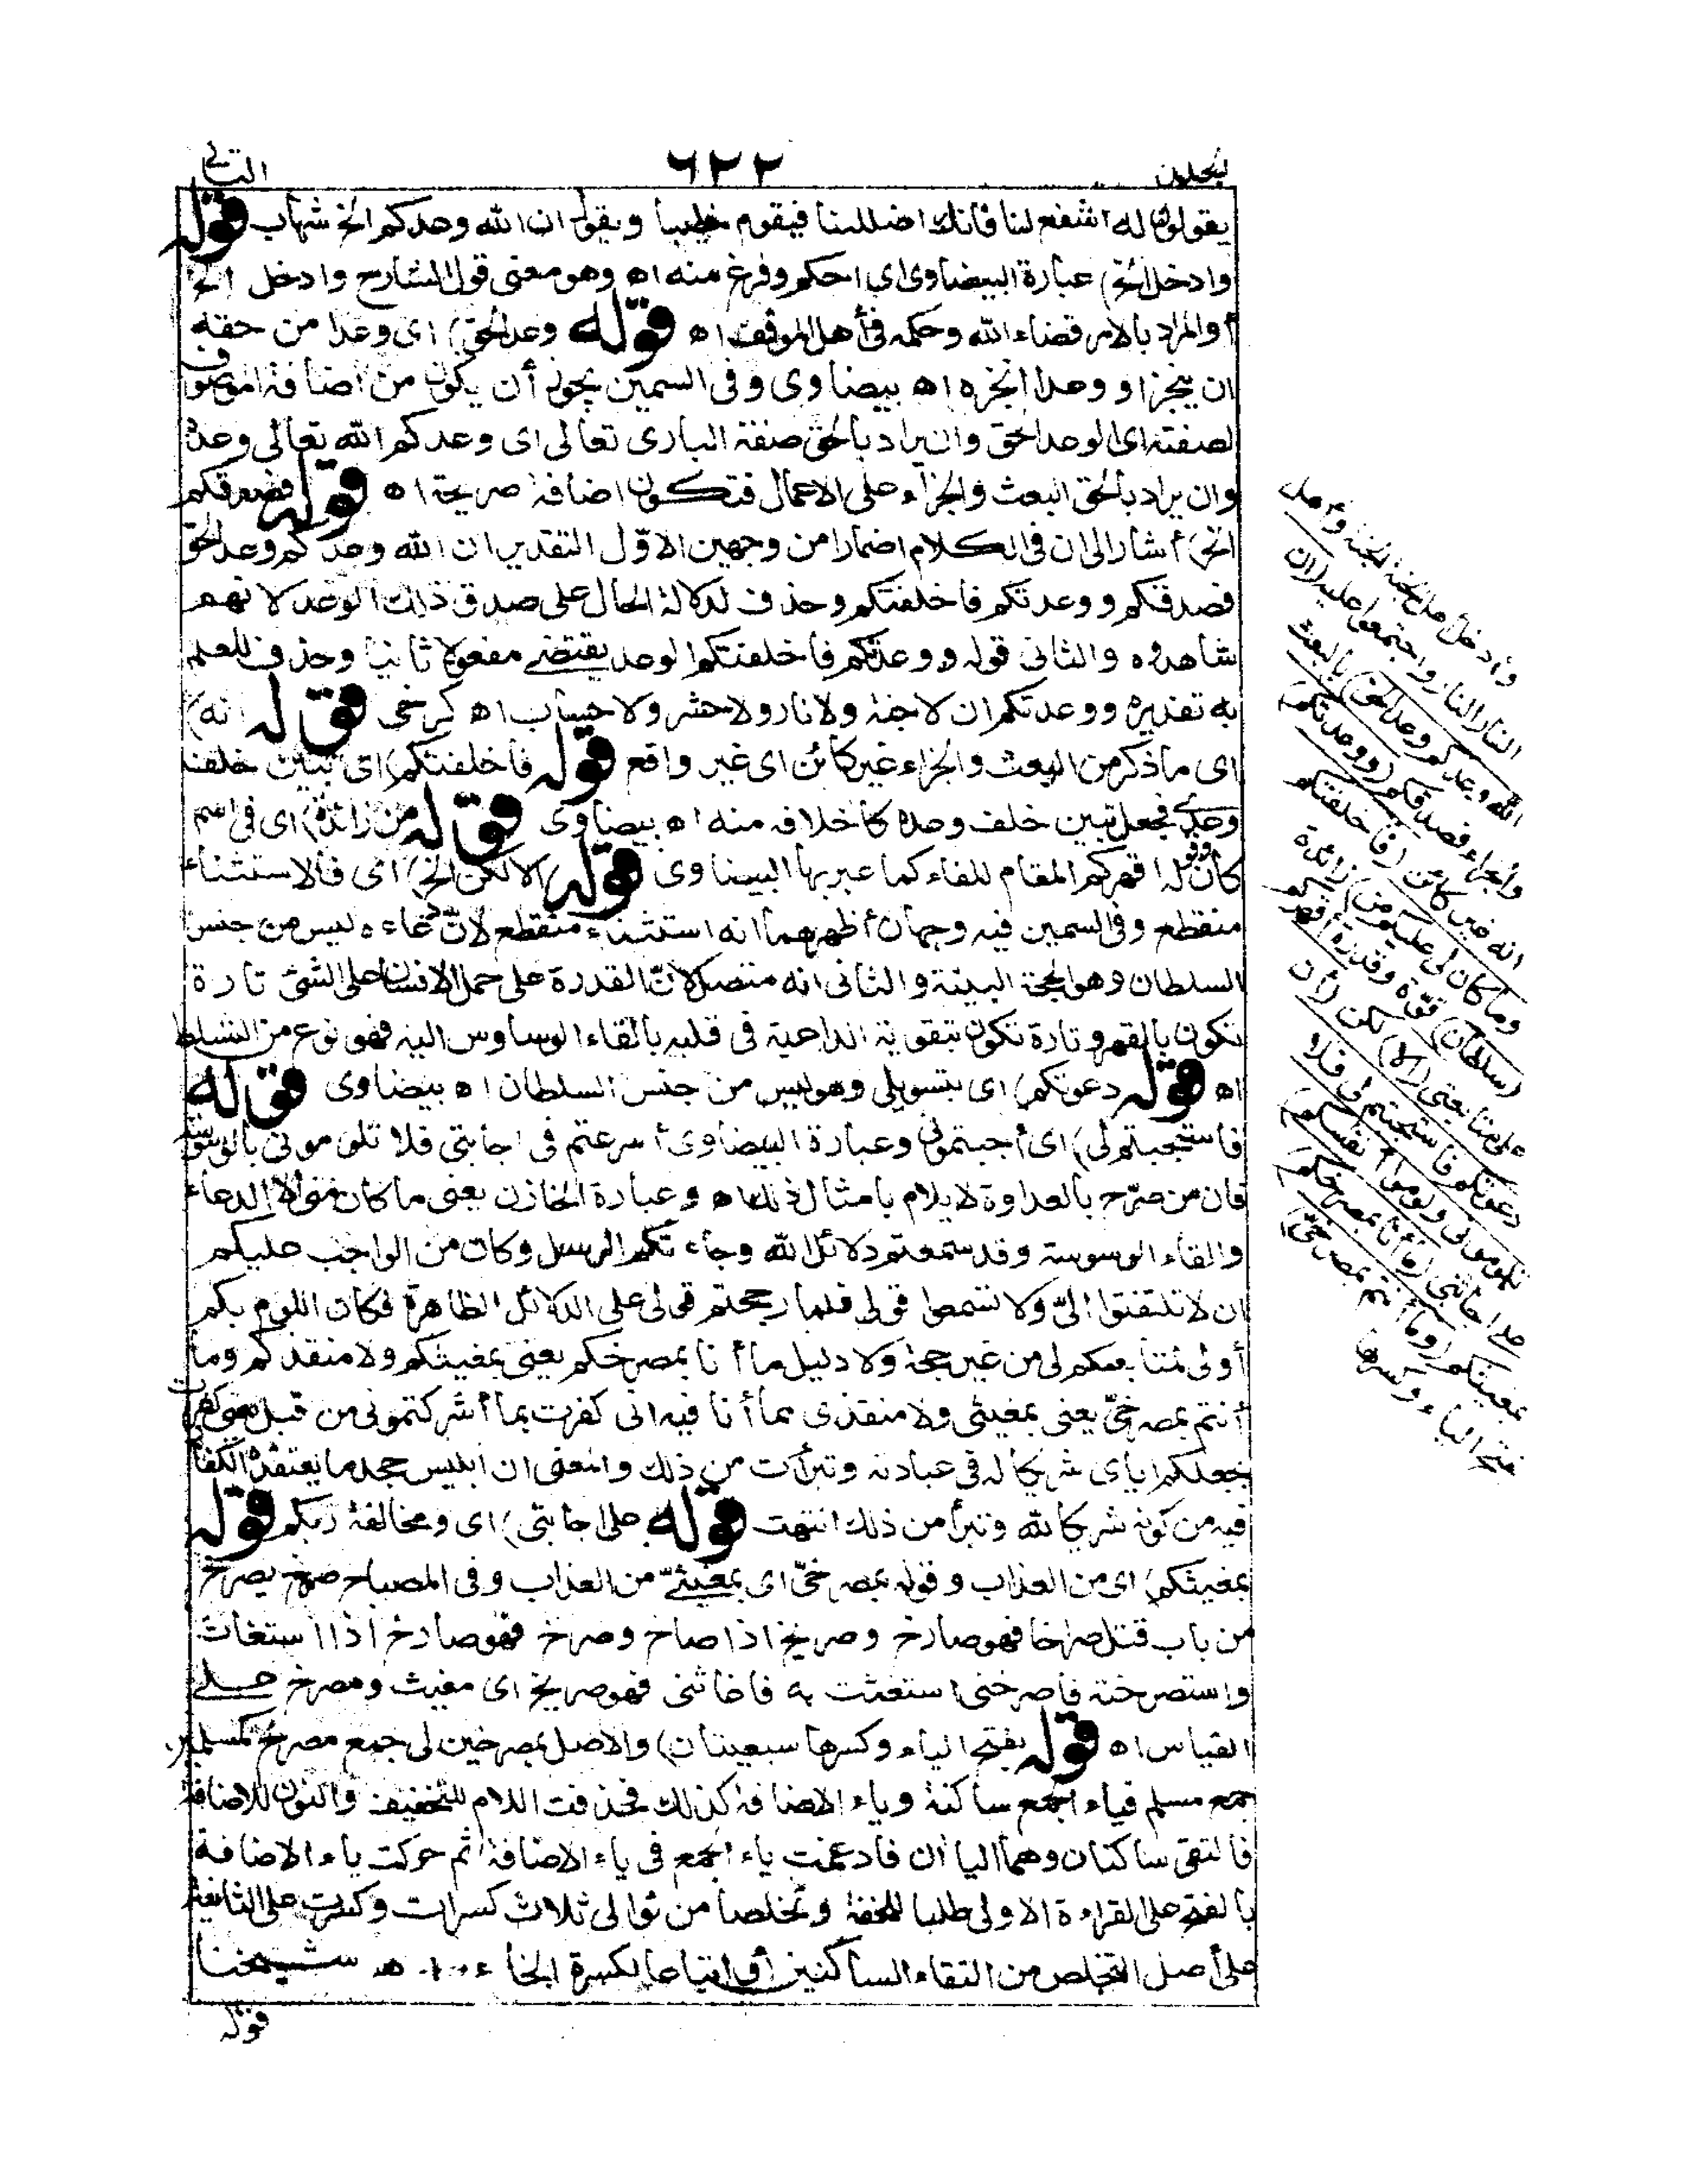 الثاني
٦٢٢
يقولون له اشفع لنا فانك اضللتنا فيقوم خطيبا ويقول ان الله وعدكم الخ شهاب قوله
وادخل الخ) عبارة البيضاوى اى احكم وفرغ منه اه وهو معنى قول الشارح وادخل الخ
أوالمراد بالامر قضاء الله وحكمه فى أهل الموقف اه قوله وعد الحق) اى وعدا من حقه
ان ينجز او وعدا انجزه اه بيضاوى وفى السمين يجوز أن يكون من اضافة الموصوف
لصفته اى الوعد الحق وان يراد بالحق صفة البارى تعالى اى وعدكم الله تعالى وعده
وان يراد بالحق البعث والجزاء على الاعمال فتكون اضافة صريحة اه قوله فصدقكم
الخ) أشار الى ان فى الكلام اضمارا من وجهين الاوّل التقدير ان الله وعدكم وعد الحق
فصدقكم ووعدتكم فاخلفتكم وحذف لدلالة الحال على صدق ذلك الوعد لانهم
شاهدوه والثانى قوله ووعدتكم فاخلفتكم الوعد يقتضى مفعولا ثانيا وحذف للعلم
به تقديره ووعدتكم ان لا جنة ولا نار ولا حشر ولا حساب اه كرخى قوله انه)
اى ما ذكر من البعث والجزاء غير كائن اى غير واقع قوله فاخلفتكم) اى تبين خلف
وعدى فجعل تبين خلف وعده كاخلافه منه اه بيضاوى قوله من زائدة) اى فى اسم
كان وقوله اقهركم المقام للفاء كما عبر بها البيضاوى قوله الا لكن الخ) اى فالاستثناء
منقطع وفى السمين فيه وجهان أظهرهما انه استثناء منقطع لانّ دعاءه ليس من جنس
السلطان وهو الحجة البينة والثانى انه متصل لانّ القدرة على حمل الانسان على الشئ تارة
تكون بالقهر وتارة تكون بتقوية الداعية فى قلبه بالقاء الوساوس اليه فهو نوع من التسلط
اه قوله دعوتكم) اى بتسويلى وهو ليس من جنس السلطان اه بيضاوى قوله
فاستجبتم لى) اى أجبتمونى وعبارة البيضاوى أسرعتم فى اجابتى فلا تلومونى بالوسوسة
فان من صرّح بالعداوة لا يلام بامثال ذلك اه وعبارة الخازن يعنى ما كان منى الا الدعاء
والقاء الوسوسة وقد سمعتم دلائل الله وجاءتكم الرسل وكان من الواجب عليكم
ان لا تلتفتوا الىّ ولا تسمعوا قولى فلما رجحتم قولى على الدلائل الظاهرة فكان اللوم بكم
أولى بمتابعتكم لى من غير حجة ولا دليل ما أنا بمصرخكم يعنى بمغيثكم ولا منقذكم وما
أنتم بمصرخىّ يعنى بمغيثى ولا منقذى مما أنا فيه انى كفرت بما أشركتمونى من قبل يعنى كفرت
بجعلكم اياى شريكا له فى عبادته وتبرأت من ذلك والمعنى ان ابليس جحد ما يعتقده الكفار
فيه من كونه شريكا لله وتبرأ من ذلك انتهت قوله على اجابتى) اى ومخالفة ربكم قوله
بمغيثكم) اى من العذاب وقوله بمصرخىّ اى بمغيثىّ من العذاب وفى المصباح صرخ يصرخ
من باب قتل صراخا فهو صارخ وصريخ اذا صاح وصرخ فهو صارخ اذا استغاث
واستصرخته فاصرخنى استغثت به فاغاثنى فهو صريخ اى مغيث ومصرخ على
القياس اه قوله بفتح الياء وكسرها سبعيتان) والاصل بمصرخين لى جمع مصرخ كمسلمين
جمع مسلم فياء الجمع ساكنة وياء الاضافة كذلك فحذفت اللام للتخفيف والنون للاضافة
فالتقى ساكنان وهما اليا ان فادغمت ياء الجمع فى ياء الاضافة ثم حركت ياء الاضافة
بالفتح على القراءة الاولى طلبا للخفة وتخلصا من توالى ثلاث كسرات وكسرت على الثانية
على أصل التخلص من التقاء الساكنين أو اتباعا لكسرة الخاء اه شيخنا
قوله
وأدخل اهل الجنة الجنة وأهل
النار النار واجتمعوا عليه (ان
الله وعدكم وعد الحق) بالبعث
والجزاء فصدقكم (ووعدتكم)
انه غير كائن (فاخلفتكم
وما كان لى عليكم من) زائدة
(سلطان) قوّة وقدرة أقهركم
على متابعتى (الا) لكن (أن
دعوتكم فاستجبتم لى فلا
تلومونى ولوموا أنفسكم)
على اجابتى (ما أنا بمصرخكم)
بمغيثكم (وما أنتم بمصرخىّ)
بفتح الياء وكسرها